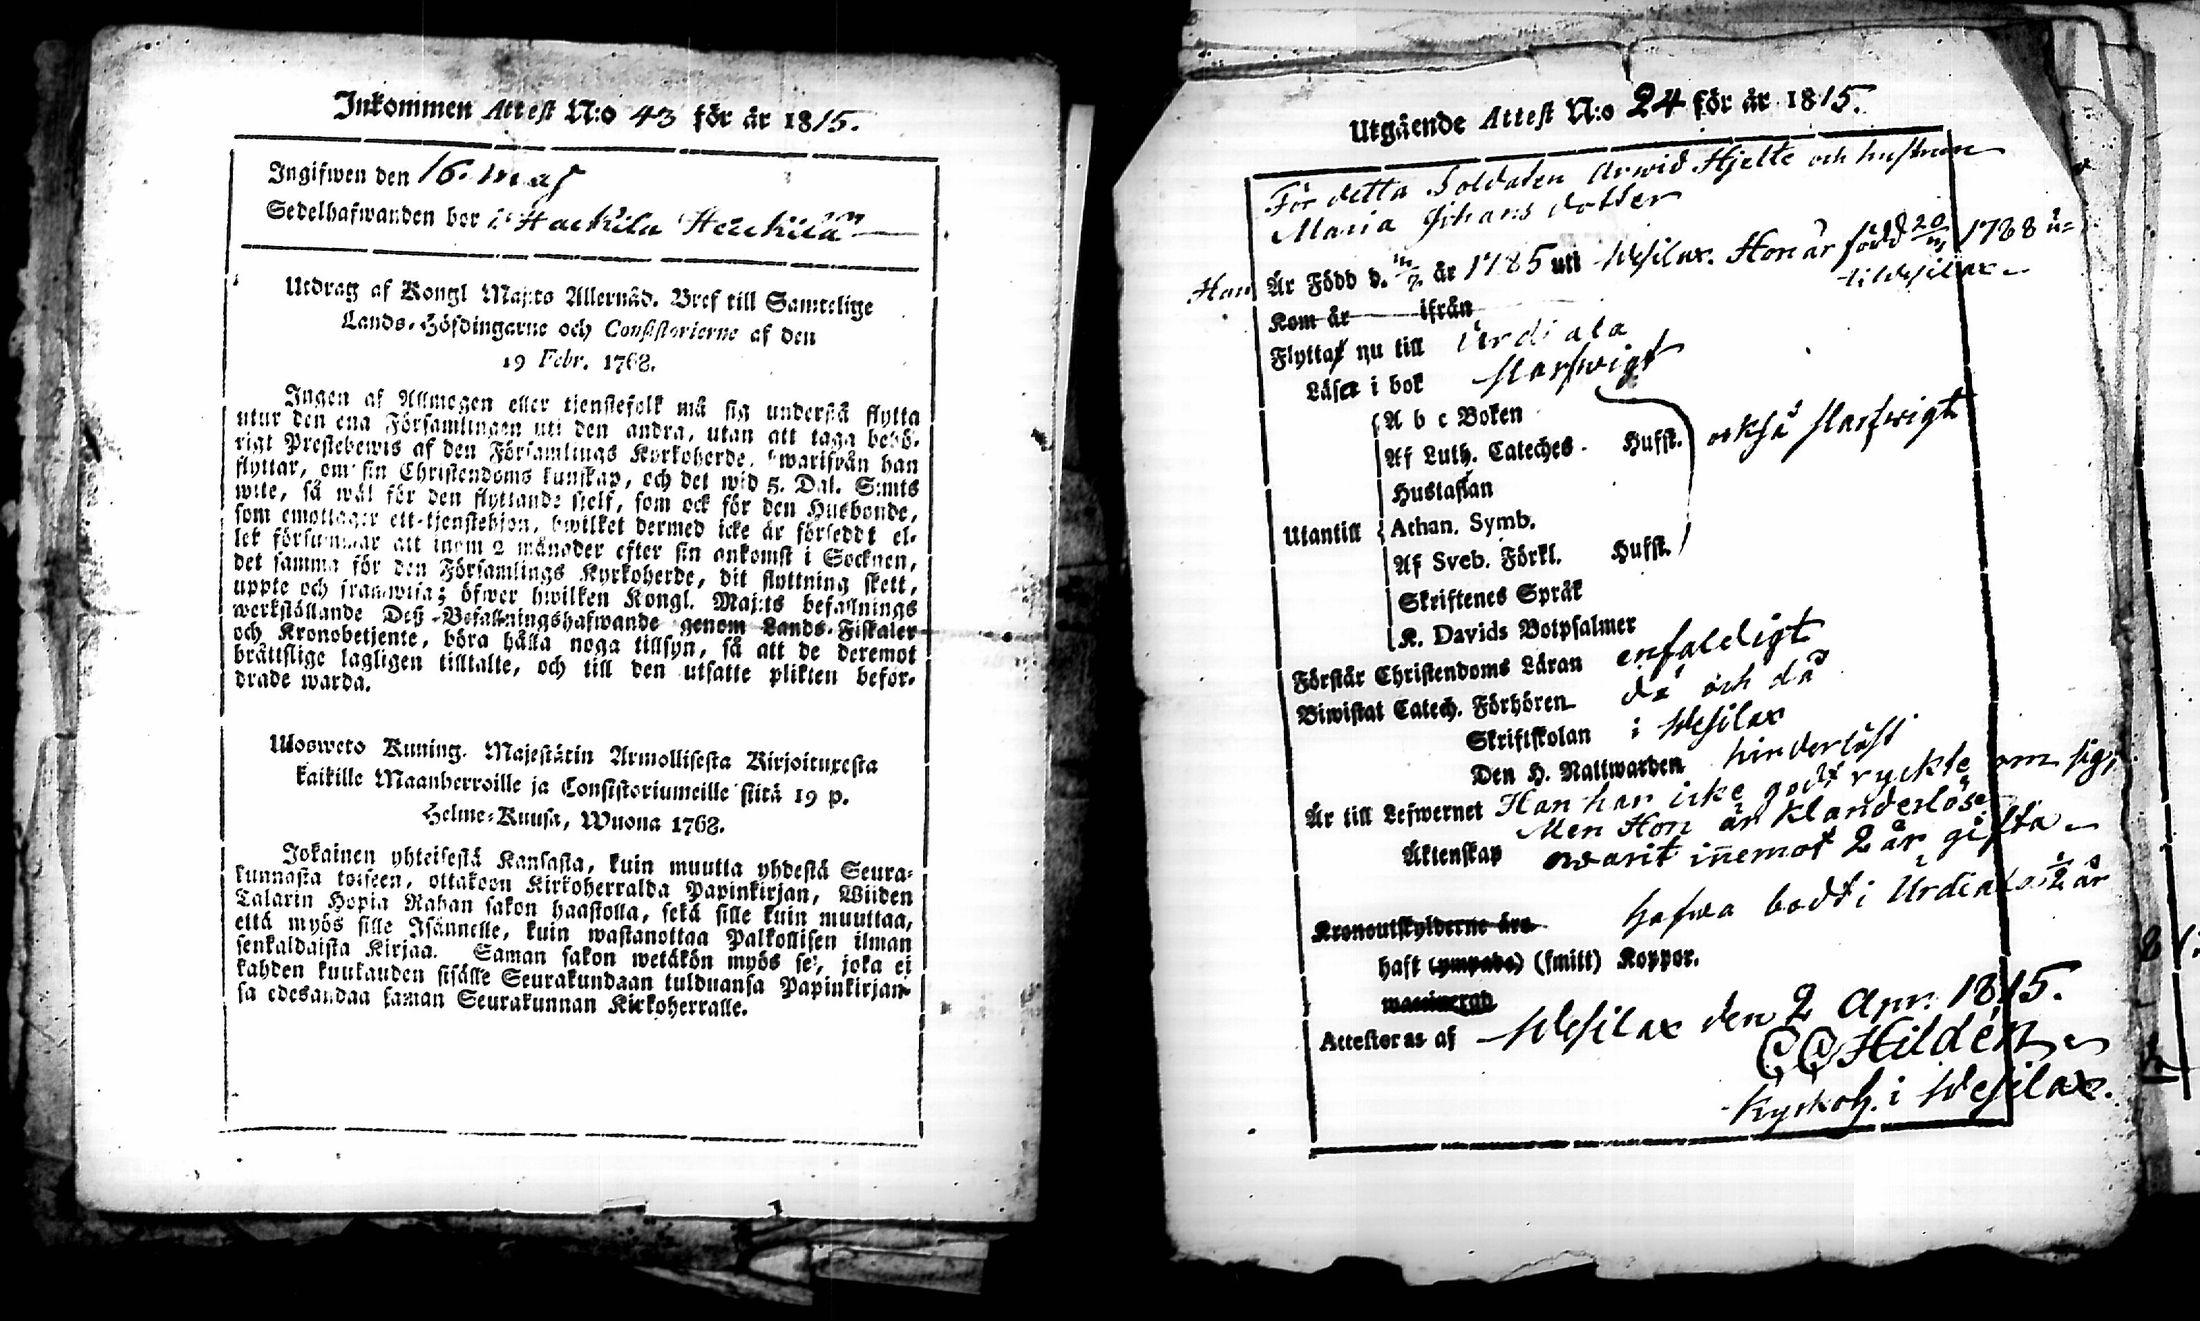 Inkommen Attest N:o 43 för år 1815.
Ingifwen den 16. maj
Sedelhafwanden bor i Hackila Heickilä
Utdrag af Kongl Maj:ts Allernåd. Bref till Samtelige
Lands-Höfdingarne och Consistorierne af den
19 Febr. 1768.
Ingen af Allmogen eller tjenstefolk må sig understå flytta
utur den ena Församlingen uti den andra, utan att taga behö-
rigt Prestebewis af den Församlings Kyrkoherde, hwarifrån han
flyttar, om sin Christendoms kunskap, och det wid 5. Dal. S:mts
wite, så wäl för den flyttande sjelf, som ock för den Husbonde,
som emottager ett tjenstehjon, hwilket dermed icke är försedt el-
ler försummar att inom 2 månader efter sin ankomst i Socknen,
det samma för den Församlings Kyrkoherde, dit flyttning skett,
uppte och framwisa; öfwer hwilken Kongl. Maj:ts befallnings
werkställande Dess Befallningshafwande genom Lands-Fiskaler
och Kronobetjente, böra hålla noga tillsyn, så att de deremot
bråttslige lagligen tilltalte, och till den utsatte plikten befor-
drade warda.
Ulosweto Kuning. Majestätin Armollisesta Kirjoituxesta
kaikille Maanherroille ja Consistoriumeille siitä 19 p.
Helme-Kuusa, Wuona 1768.
Jokainen yhteisestä Kansasta, kuin muutta yhdestä Seura-
kunnasta toiseen, ottakoon Kirkoherralda Papinkirjan, Wiiden
Talarin Hopia Rahan sakon haastolla, sekä sille kuin muuttaa,
että myös sille Isännelle, kuin wastanottaa Palkollisen ilman
senkaldaista Kirjaa. Saman sakon wetäkön myös se, joka ei
kahden kuukauden sisälle Seurakundaan tulduansa Papinkirjan-
sa edesandaa saman Seurakunnan Kirkoherralle.
Utgående Attest N:o 24 för år 1815.
För detta Soldaten Arwid Hjelte och hustrun
Maria Johans dotter
Han Är Född d. år 1785 uti Wesilax. Hon är född 1788 u-
ti Wesilax
Kom år ifrån
Flytta nu till Urdiala
Läsa i bok Klarswigt
A b c Boken
Af Luth. Cateches. Hufst. också
Hustaflan
Utantill Athan. Symb.
Af Sveb. Förkl. Hufst.
Skriftenes Språk
K. Davids Botpsalmer
Förstår Christendoms Läran enfaldigt
Biwistat Catech. Förhören då och då
Skriftskolan i Wesilax
Den H. Nattwarden hinderlöst
Är till Lefwernet Han har icke godt ryckte om sig,
Men Hon är klanderlös
Äktenskap warit inemot 2 år gifta
Kronoutskylderne äro hafwa bodt i Urdiala 1/2 år
haft (ympade) (smitt) Koppor.
waccinerad
Attesteras af Wesilax den 2 Apr. 1815.
CC Hildén
Kyrkoh. i Wesilax.